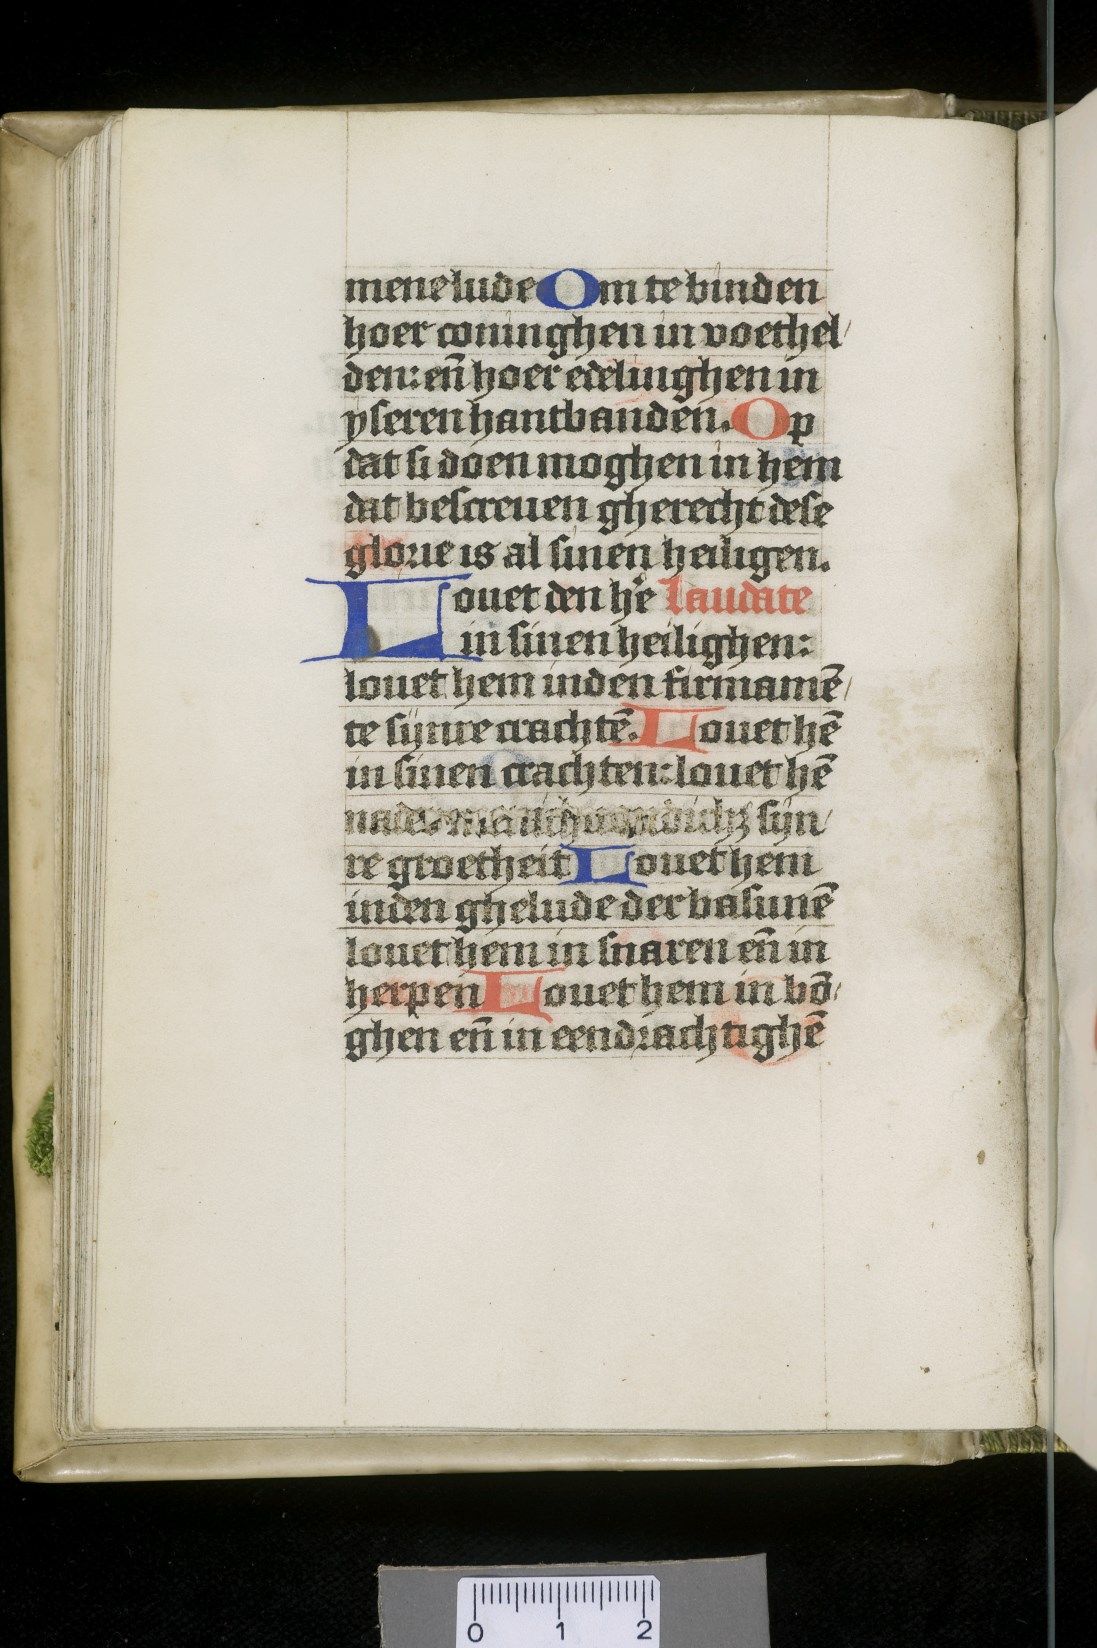 mene lude Om te binden
hoer coninghen in voethel/
den: en̄ hoer edelinghen in
yseren hantbanden. Op
dat si doen moghen in hem
dat bescreuen gherecht dese
glorie is al sinen heiligen.
Louet den hr̄e Laudate
in sinen heilighen:
louet hem inden firmamē/
te sijnre crachtē. Louet hē
in sinen crachten: louet hē
na der sijn/
re groetheit Louet hem
inden ghelude der basunē
louet hem in snaren en̄ in
herpen Louet hem in bō/
ghen en̄ in eendrachtighē
0 1 2